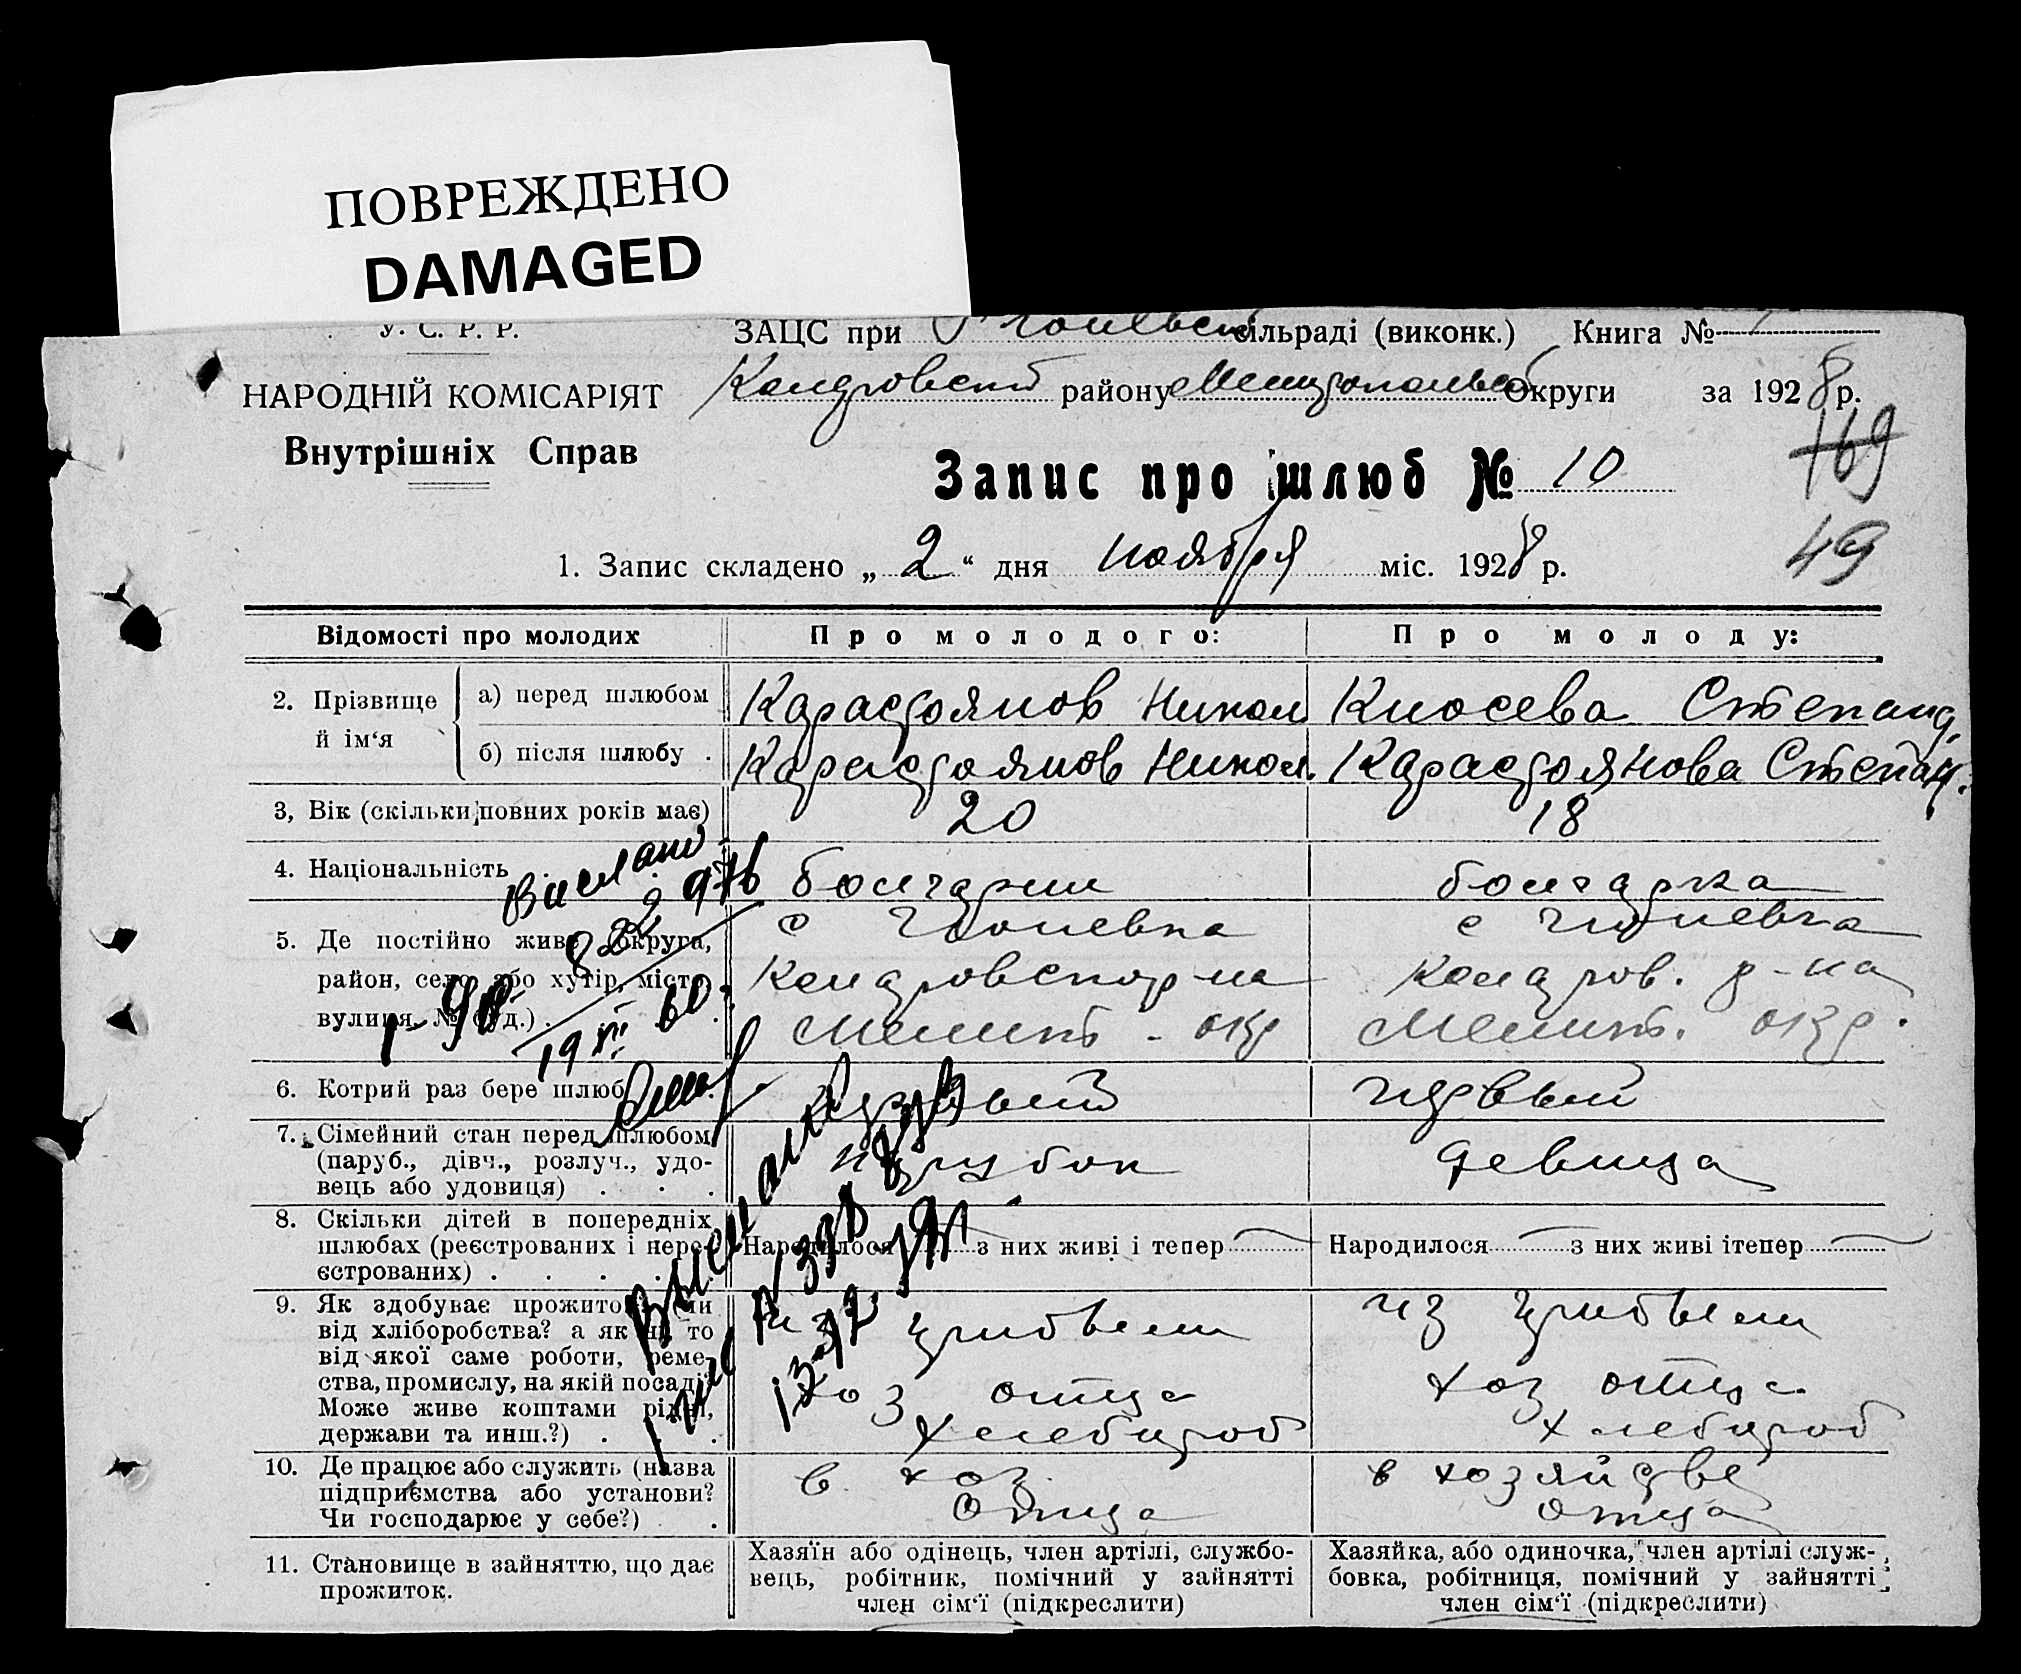 ПОВРЕЖДЕНО
DAMAGED
У. С. Р. Р.
ЗАЦС при сільраді (виконк.) Книга №
НАРОДНІЙ КОМІСАРІЯТ
району Округи за 1928 р.
Внутрішніх Справ
169
Запис про шлюб № 10
49
1. Запис складено „ 2 “ дня ноября міс. 1928 р.
Відомості про молодих
Про молодого:
Про молоду:
2. Прізвище й ім‘я
а) перед шлюбом
Карастоянов Никол
Киосева Степанд.
б) після шлюбу .
Карастоянов Никол.
Карастоянова Степан.
3, Вік (скільки повних років має)
20
18
4. Національність
болгарин
болгарка
5. Де постійно живе округа,
район, село або хутір, місто,
вулиця, № буд.) .
с Гюневка
с Гюневка
Мелит - окр
Коларов. р-на
Мелит. окр.
6. Котрий раз бере шлюб
первый
первый
7. Сімейний стан перед шлюбом
(паруб., дівч., розлуч., удо-
вець або удовиця) . . .
парубок
девица
8. Скільки дітей в попередніх
шлюбах (реєстрованих і нере-
єстрованих) .
Народилося з них живі і тепер
Народилося з них живі ітепер
9. Як здобуває прожиток чи
від хліборобства? а як ні, то
від якої саме роботи, реме-
ства, промислу, на якій посаді?
Може живе коштами рідні,
держави та инш.?) .
из прибыли
хоз отца
хлебороб
из прибыли
хоз отца
хлебороб
10. Де працює або служить (назва
підприємства або установи?
Чи господарює у себе?) .
в хоз.
отца
в хозяйстве
отца
11. Становище в зайняттю, що дає
прожиток.
Хазяїн або одінець, член артілі, службо-
вець, робітник, помічний у зайнятті
член сім‘ї (підкреслити)
Хазяйка, або одиночка, член артілі служ-
бовка, робітниця, помічний у зайнятті
член сім‘ї (підкреслити)